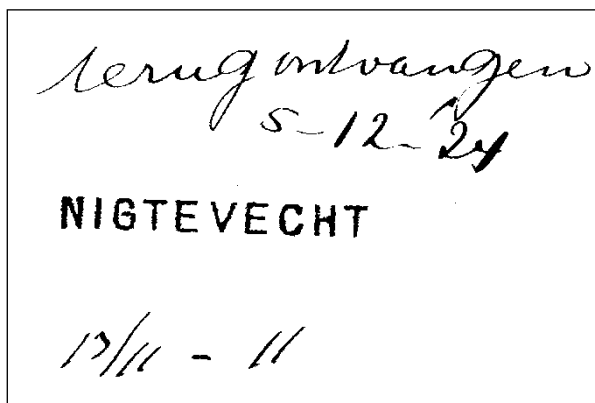 terug ontvangen
5-12-'24
NIGTEVECHT
13/11 - 11